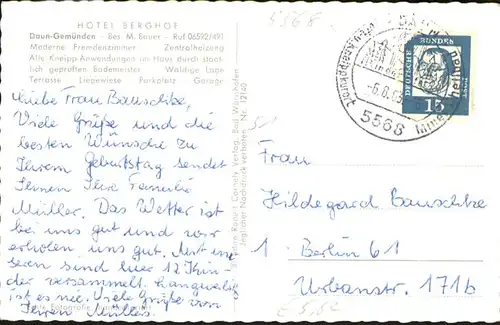 HOTEL BERGHOF
Daun-Gemünden - Bes. M. Bauer - Ruf 06592/491
Moderne Fremdenzimmer Zentralheizung
Alle Kneipp-Anwendungen im Haus durch staat-
lich geprüften Bademeister Waldige Lage
Terrasse Liegewiese Parkplatz Garage
Liebe Frau Bauschke,
Viele Grüße und die
besten Wünsche zu
Ihrem Geburtstag sendet
Ihnen Ihre Familie
Müller. Das Wetter ist
bei uns gut und wir
erholen uns gut. Mit un
seren sind hier 12 Kin-
der versammelt. Langweilig
ist es nie. Viele Grüße von
Ihren Müllers.
Verlag, Bad Wörishofen
Jeglicher Nachdruck verboten Nr.
51
5568
DEUTSCHE BUNDESPOST
15
-6.8.65
5568
Frau
Hildegard Bauschke
1 Berlin 61
Urbanstr. 171b